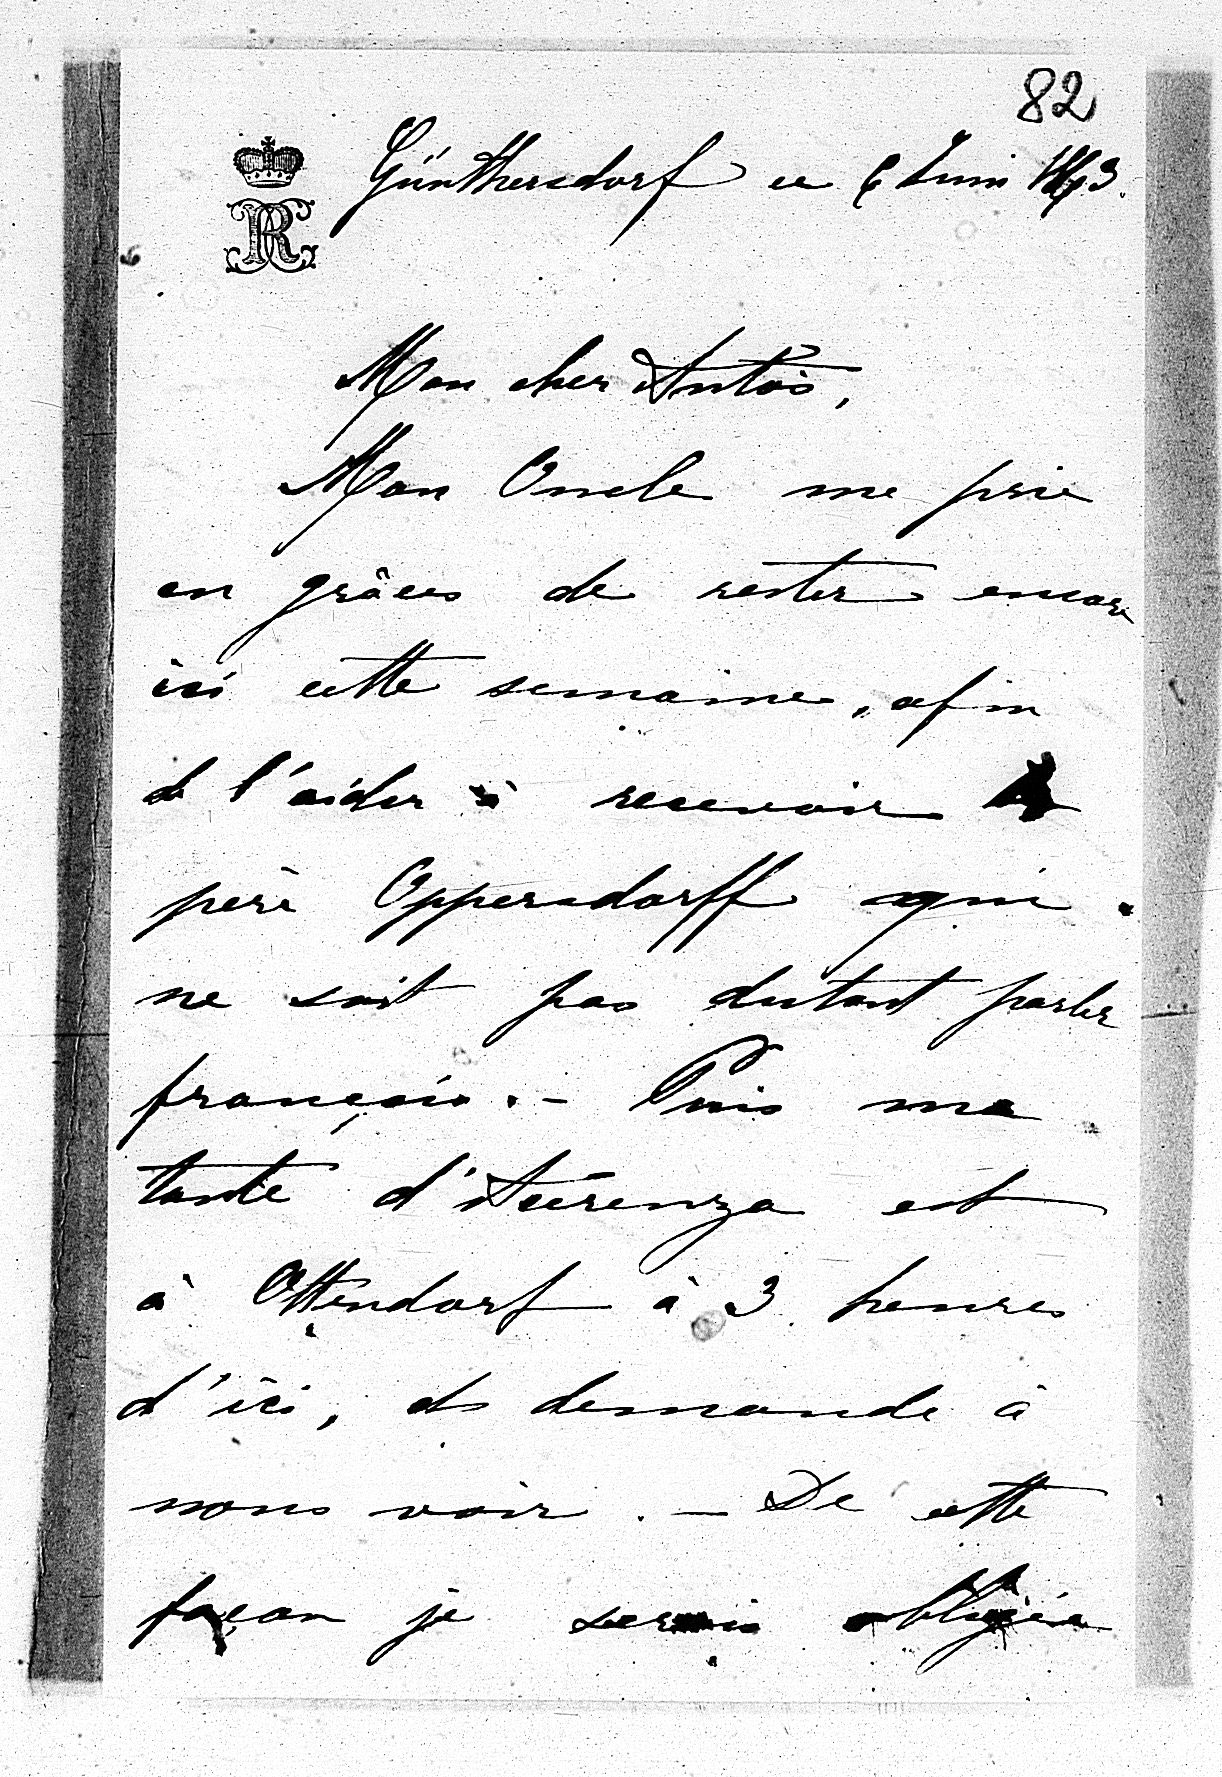 82
Günthersdorf ce 6 Juin 1863.
Mon cher Antoś,
Mon Oncle me prie
en grâces de rester encore
ici cette semaine, afin
de l'aider à recevoir
père Oppersdorff qui
ne sait pas du tout parler
français. - Puis ma
tante d'Acérenza est
à Ottendorf à 3 heures
d'ici, et demande à
nous voir. - De cette
façon je serais obligée